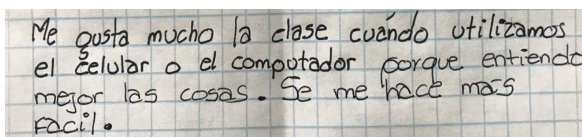 Me gusta mucho la clase cuándo utilizamos
el celular o el computador porque entiendo
mejor las cosas. Se me hace más
facil.